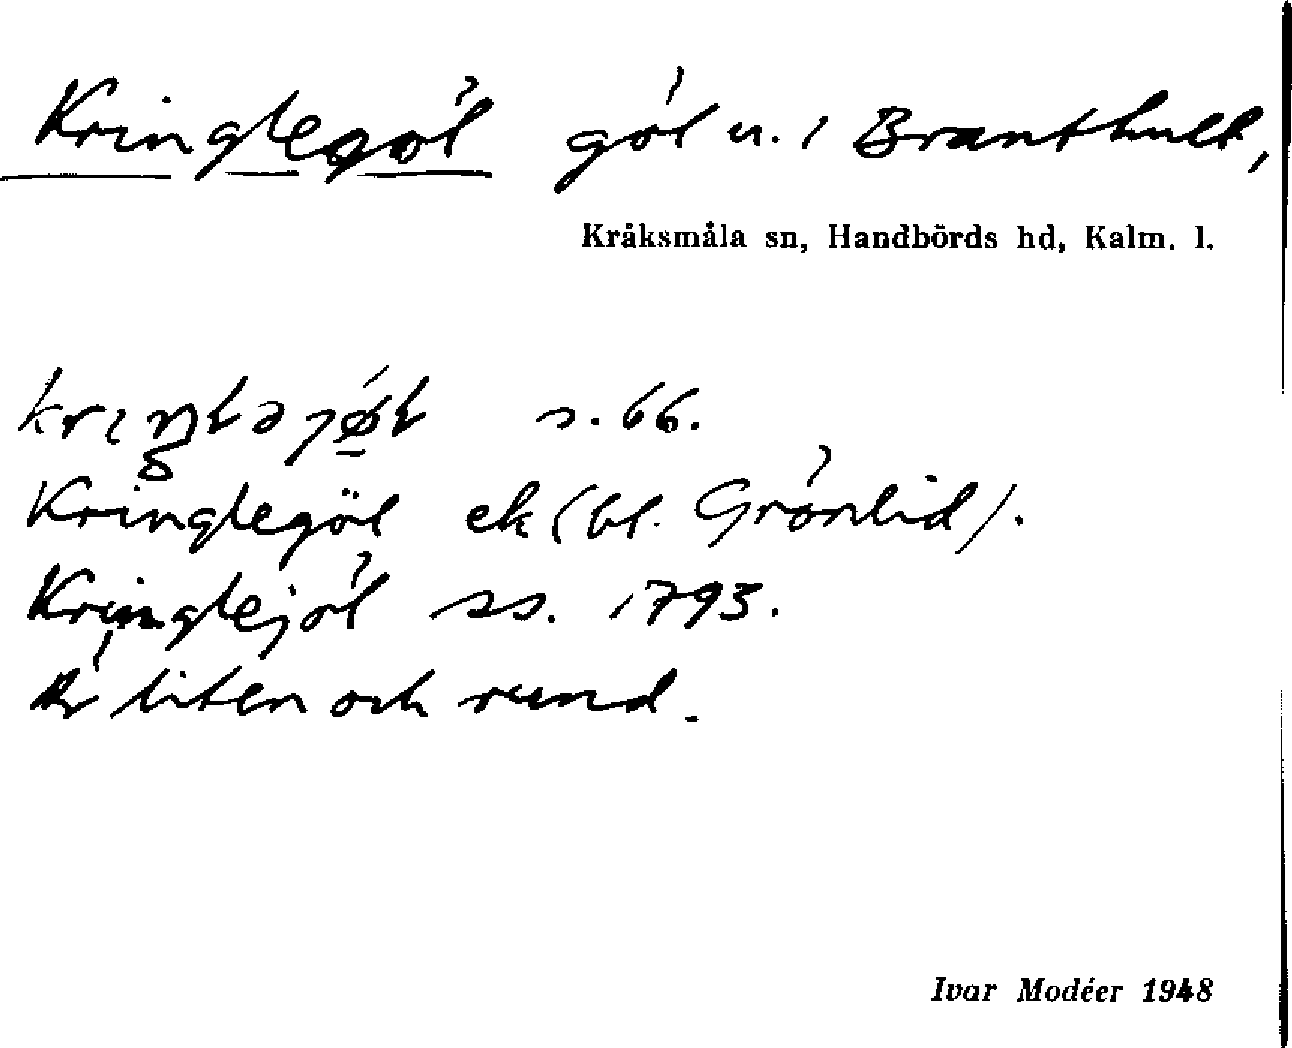 Kringlegöl göl n. i Branthult,
Kråksmåla sn, Handbörds hd, Kalm. l.
s. 66.
Kringlegöl ek (bl. Grönlid).
Kringlejöl ss. 1793.
Är liten och rund.
Ivar Modéer 1948